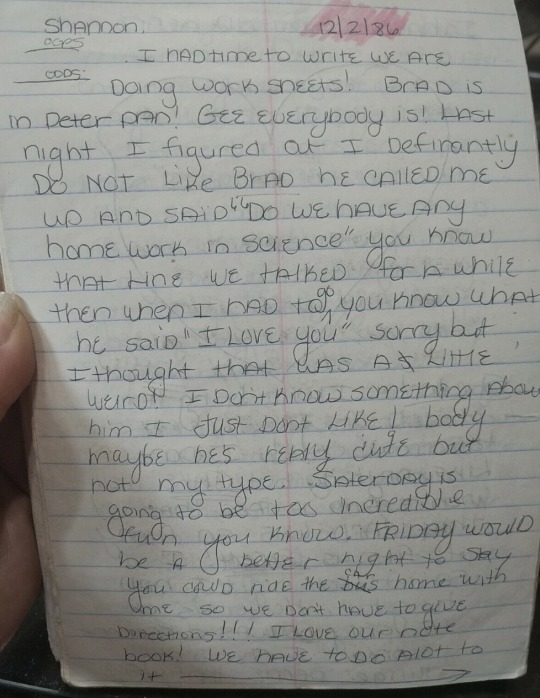 Shannon, 12/2/86
OOPS
OOPS: I HAD time to write WE ARE
DOING WORK SHEETS! BRAD is
in Peter PAN! GEE EVERYBODY is! LAST
night I figured out I Definantly
DO NOT LIKE BRAD he CALLED ME
UP AND SAID "DO WE HAVE ANY
home work in science" you know
tHAt LINE WE tALKED for A while
then when I HAD to go, you know what
he said "I LOVE you" sorry but
I thought that WAS A LittlE
weird! I Don't know something About
him I Just Dont LIKE! body
maybe he's REALLY cute but
not my type. SAterDAY is
going to be too incredible
fun you know. FRIDAY WOULD
be A better night to stay
you could ride the bus home with
me so we Dont HAVE to give
Directions!!! I LOVE our note
book! WE HAVE to DO Alot to
it